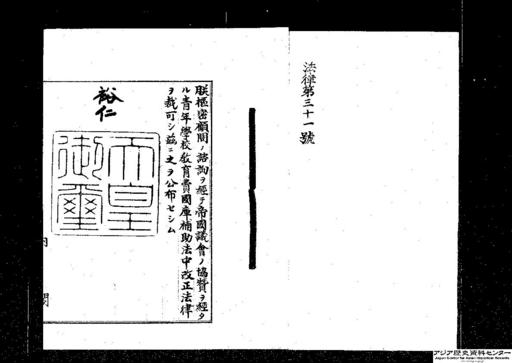 法律第三十一號
朕樞密顧問ノ諮詢ヲ經テ帝國議會ノ協贊ヲ經タ
ル青年學校教育費國庫補助法中改正法律
ヲ裁可シ茲ニ之ヲ公布セシム
裕仁
天皇
御璽
内閣
アジア歴史資料センター
Japan Center for Asian Historical Records